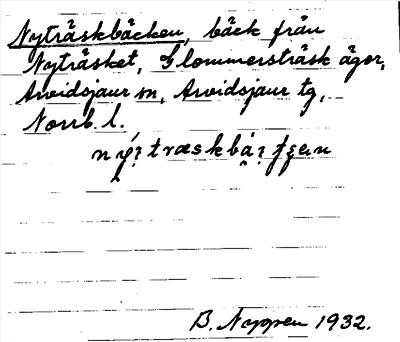 Nyträskbäcken, bäck från
Nyträsket, Glommersträsk ägor,
Arvidsjaur sn, Arvidsjaur tg,
Norrb. l.
B. Noppen 1932.